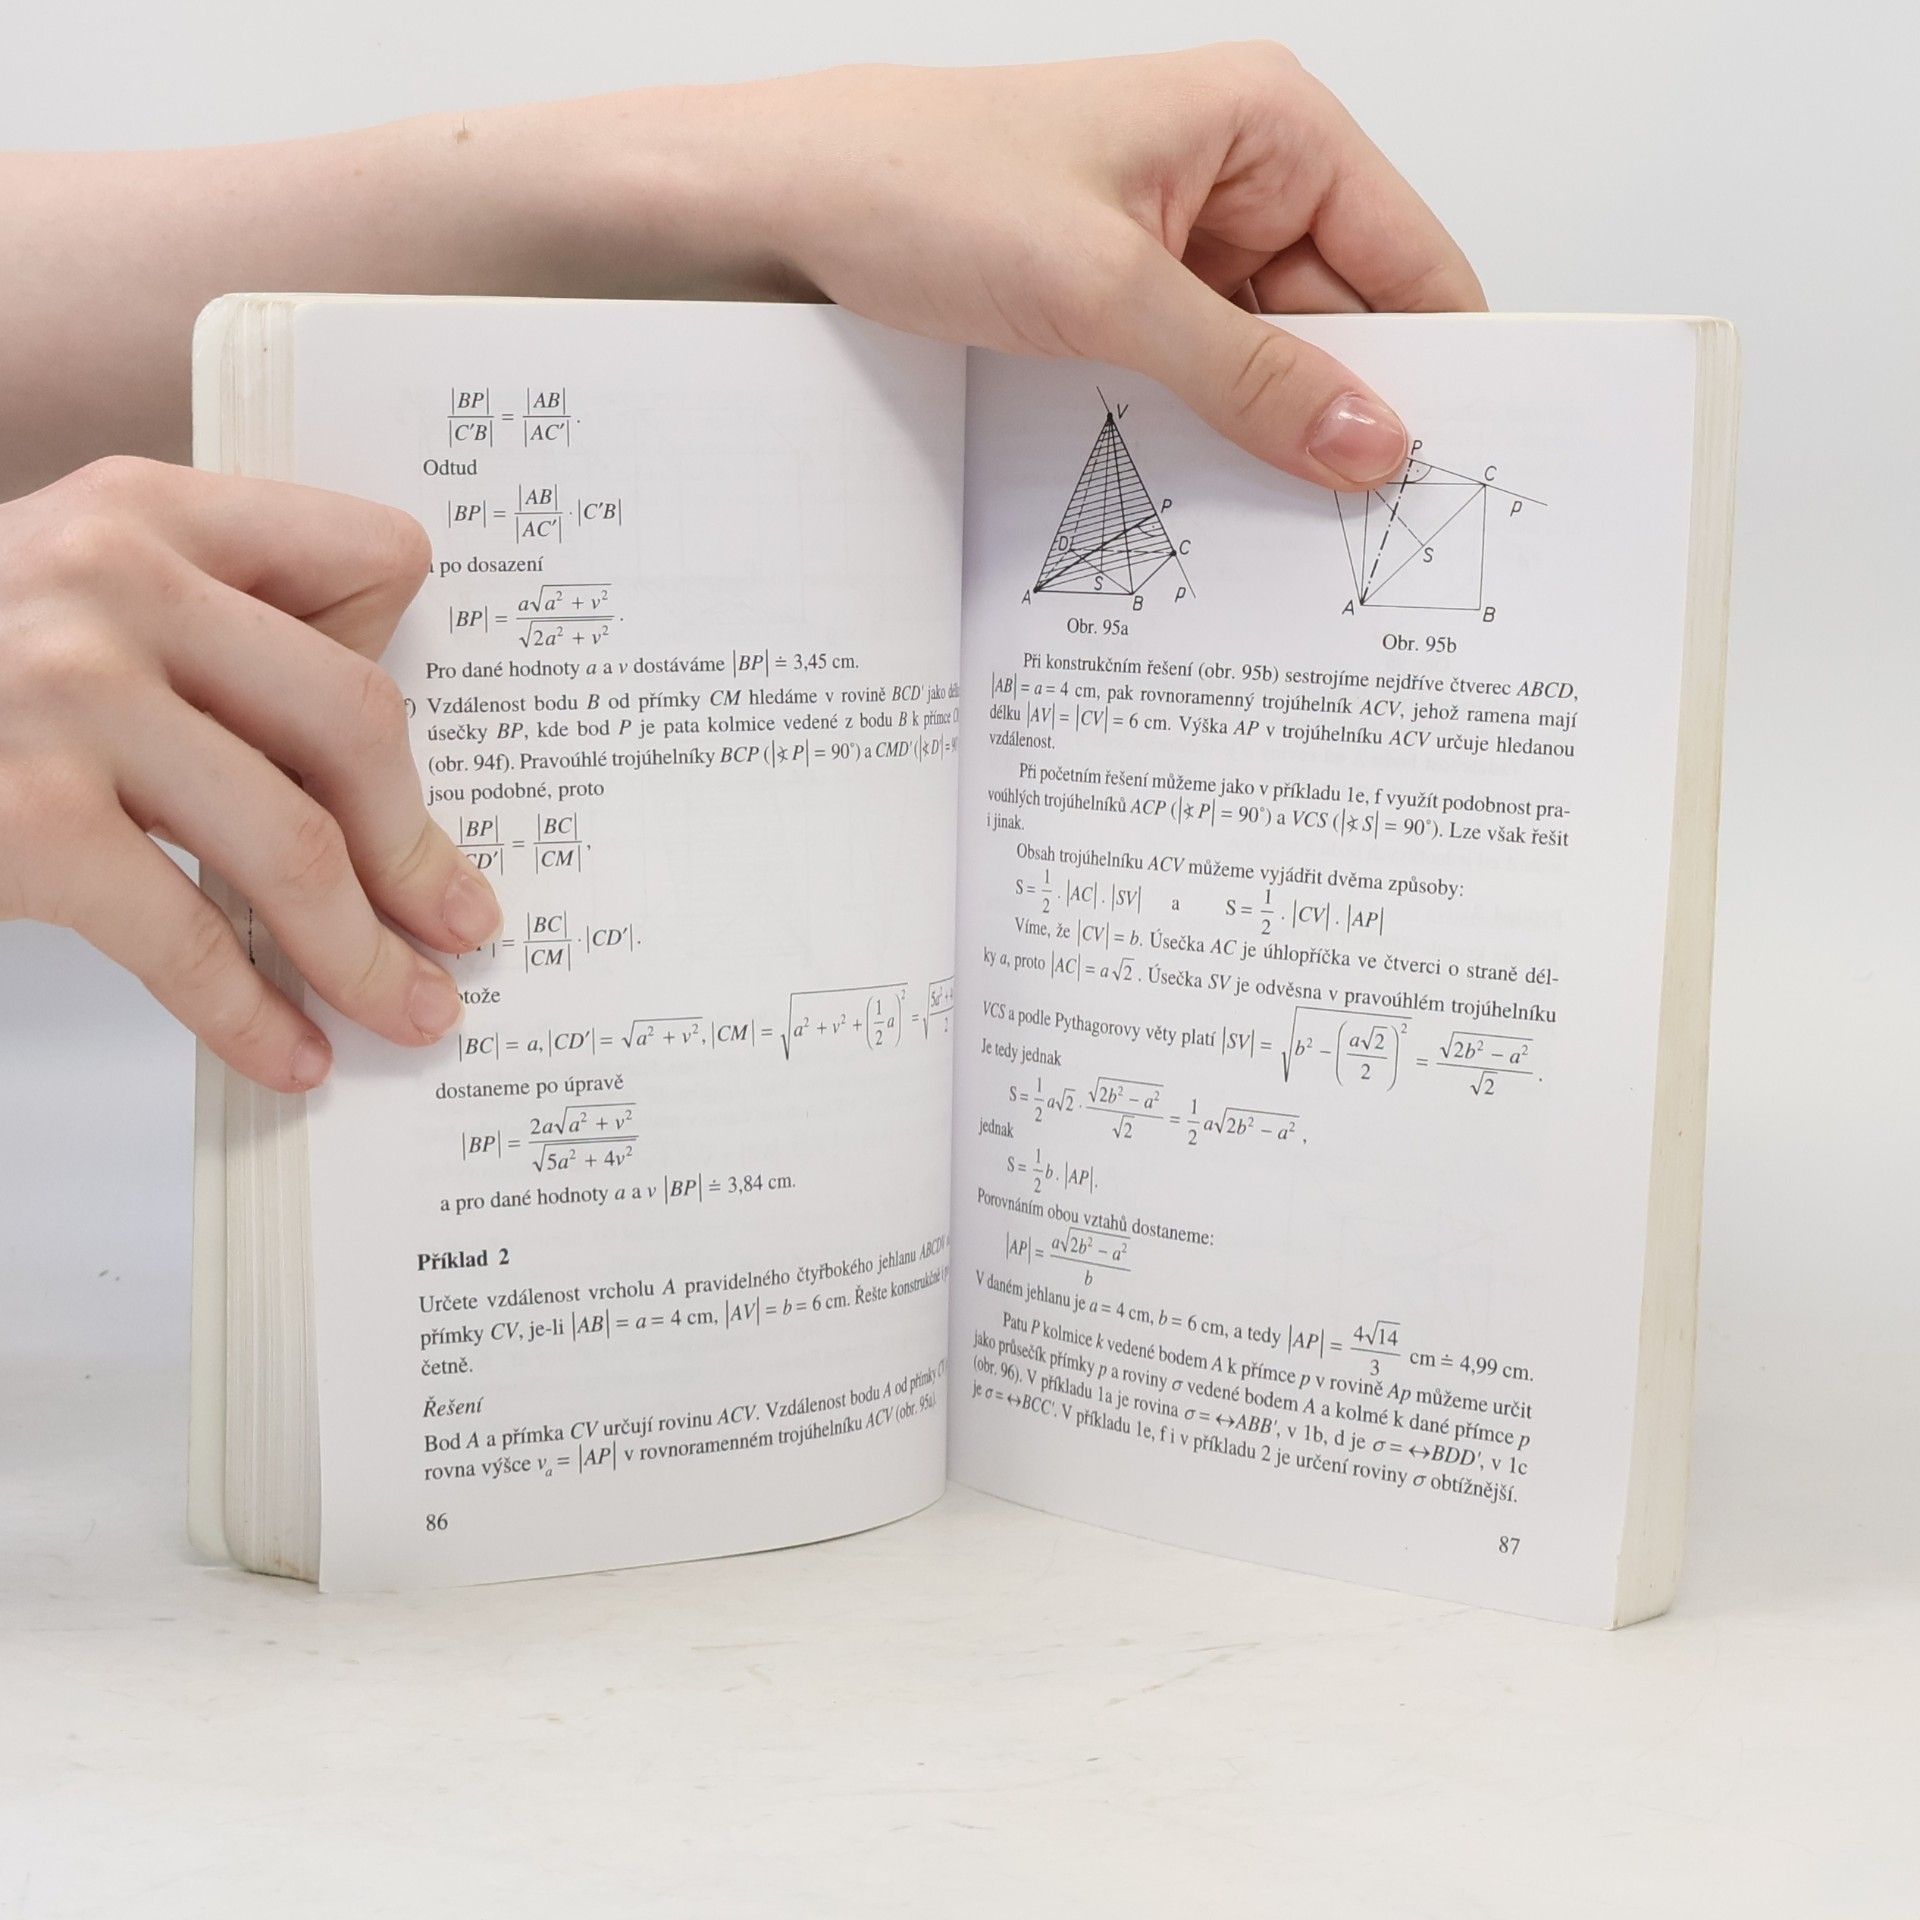 |BP| / |C'B| = |AB| / |AC'| .
Odtud
|BP| = |AB| / |AC'| · |C'B|
po dosazení
|BP| = a√(a² + v²) / √(2a² + v²) .
Pro dané hodnoty a a v dostáváme |BP| ≐ 3,45 cm.
f) Vzdálenost bodu B od přímky CM hledáme v rovině BCD' jako
úsečky BP, kde bod P je pata kolmice vedené z bodu B k přímce
(obr. 94f). Pravoúhlé trojúhelníky BCP (|∢ P| = 90°) a CMD' (|∢ D'| =
jsou podobné, proto
|BP| / CD'| = |BC| / |CM| ,
= |BC| / |CM| · |CD'|.
|BC| = a, |CD'| = √(a² + v²), |CM| = √(a² + v² + (1/2 a)²) =
dostaneme po úpravě
|BP| = 2a√(a² + v²) / √(5a² + 4v²)
a pro dané hodnoty a a v |BP| ≐ 3,84 cm.
Příklad 2
Určete vzdálenost vrcholu A pravidelného čtyřbokého jehlanu ABCDV
přímky CV, je-li |AB| = a = 4 cm, |AV| = b = 6 cm. Řešte konstrukčně i
četně.
Řešení
Bod A a přímka CV určují rovinu ACV. Vzdálenost bodu A od přímky
rovna výšce vₐ = |AP| v rovnoramenném trojúhelníku ACV (obr. 95a).
86
V
P
D
C
S
A
B
p
Obr. 95a
P
C
p
S
A
B
Obr. 95b
Při konstrukčním řešení (obr. 95b) sestrojíme nejdříve čtverec ABCD,
|AB| = a = 4 cm, pak rovnoramenný trojúhelník ACV, jehož ramena mají
délku |AV| = |CV| = 6 cm. Výška AP v trojúhelníku ACV určuje hledanou
vzdálenost.
Při početním řešení můžeme jako v příkladu 1e, f využít podobnost pra-
voúhlých trojúhelníků ACP (|∢ P| = 90°) a VCS (|∢ S| = 90°). Lze však řešit
i jinak.
Obsah trojúhelníku ACV můžeme vyjádřit dvěma způsoby:
S = 1/2 . |AC| . |SV| a S = 1/2 . |CV| . |AP|
Víme, že |CV| = b. Úsečka AC je úhlopříčka ve čtverci o straně dél-
ky a, proto |AC| = a√2 . Úsečka SV je odvěsna v pravoúhlém trojúhelníku
VCS a podle Pythagorovy věty platí |SV| = √(b² − (a√2 / 2)²) = √(2b² − a²) / √2 .
Je tedy jednak
S = 1/2 a√2 . √(2b² − a²) / √2 = 1/2 a√(2b² − a²) ,
jednak
S = 1/2 b . |AP|.
Porovnáním obou vztahů dostaneme:
|AP| = a√(2b² − a²) / b
V daném jehlanu je a = 4 cm, b = 6 cm, a tedy |AP| = 4√14 / 3 cm ≐ 4,99 cm.
Patu P kolmice k vedené bodem A k přímce p v rovině Ap můžeme určit
jako průsečík přímky p a roviny σ vedené bodem A a kolmé k dané přímce p
(obr. 96). V příkladu 1a je rovina σ = ↔ABB', v 1b, d je σ = ↔BDD', v 1c
je σ = ↔BCC'. V příkladu 1e, f i v příkladu 2 je určení roviny σ obtížnější.
87